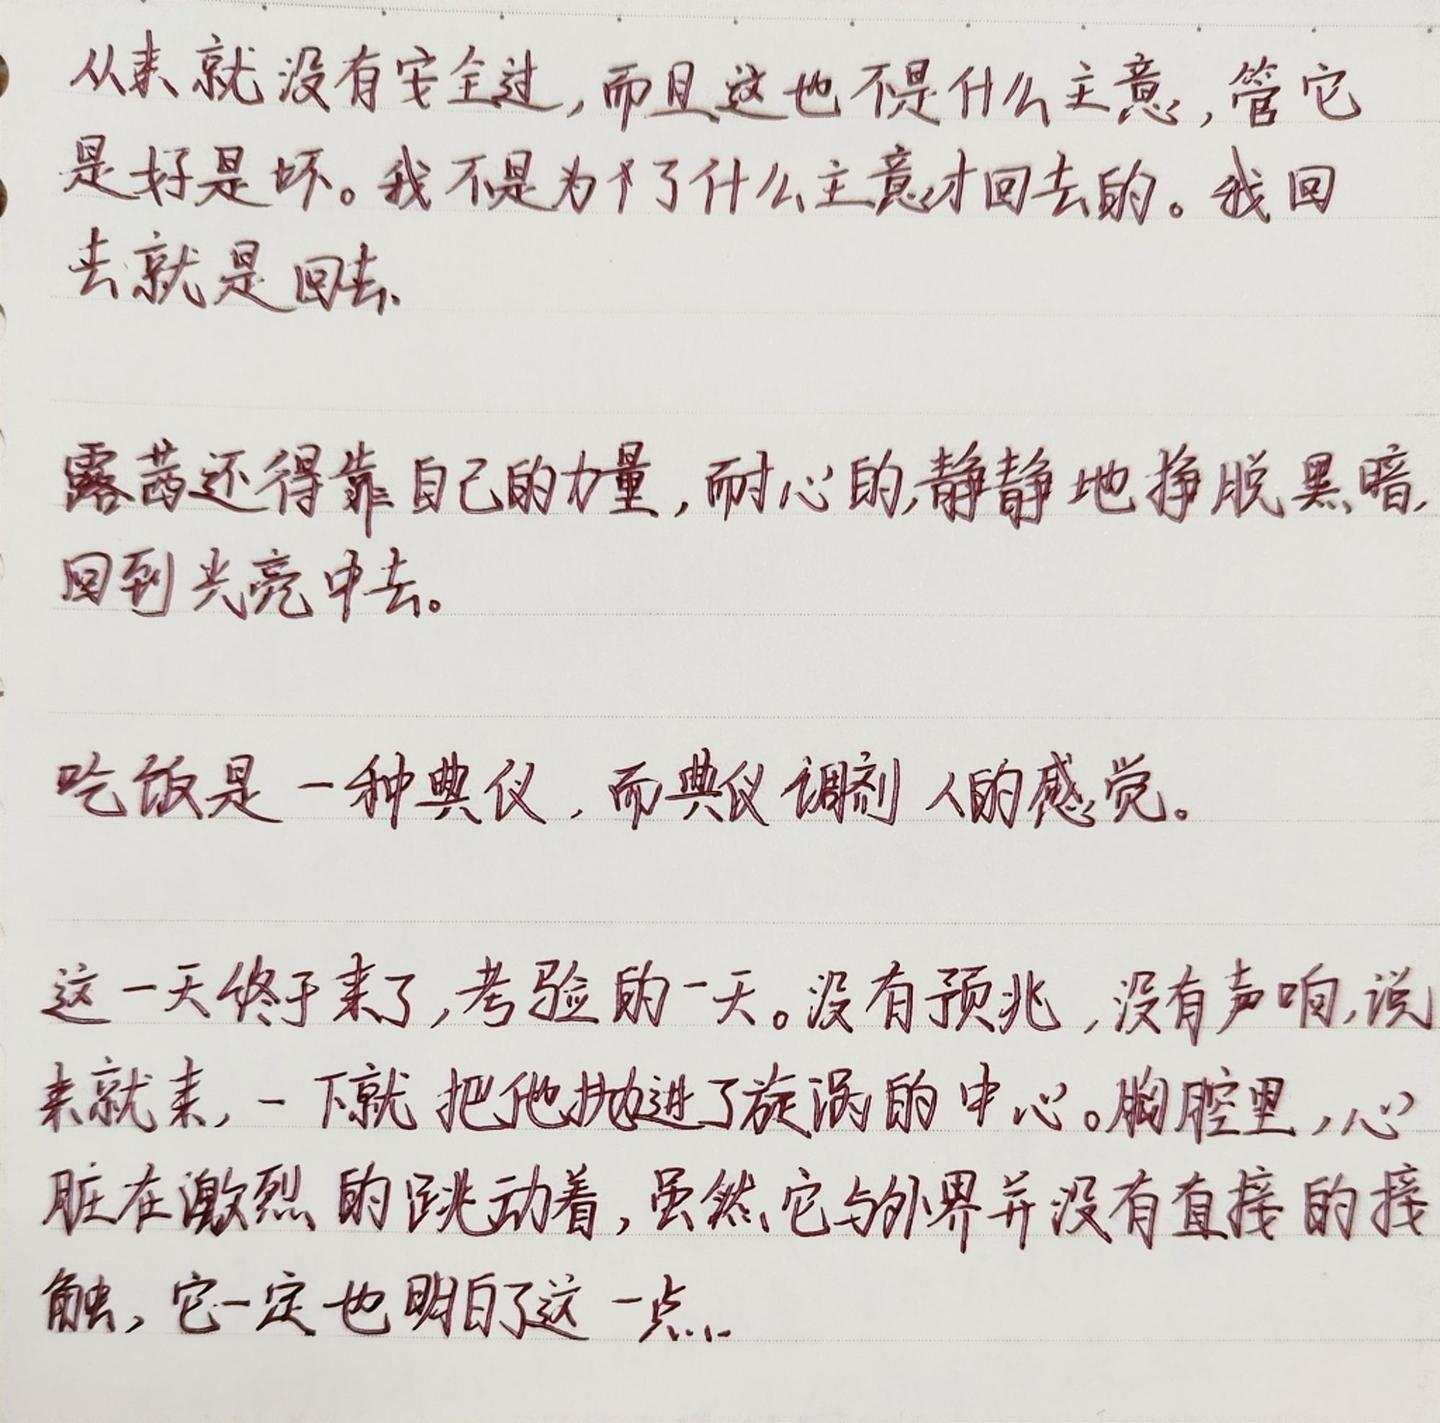 从来就没有安全过,而且这也不是什么主意,管它
是好是坏。我不是为了什么主意才回去的。我回
去就是回去.
露茜还得靠自己的力量,耐心的,静静地挣脱黑暗,
回到光亮中去。
吃饭是一种典仪,而典仪调剂人的感觉。
这一天终于来了,考验的一天。没有预兆,没有声响,说
来就来,一下就把他抛进了旋涡的中心。胸腔里,心
脏在激烈的跳动着,虽然它与外界并没有直接的接
触,它一定也明白了这一点...